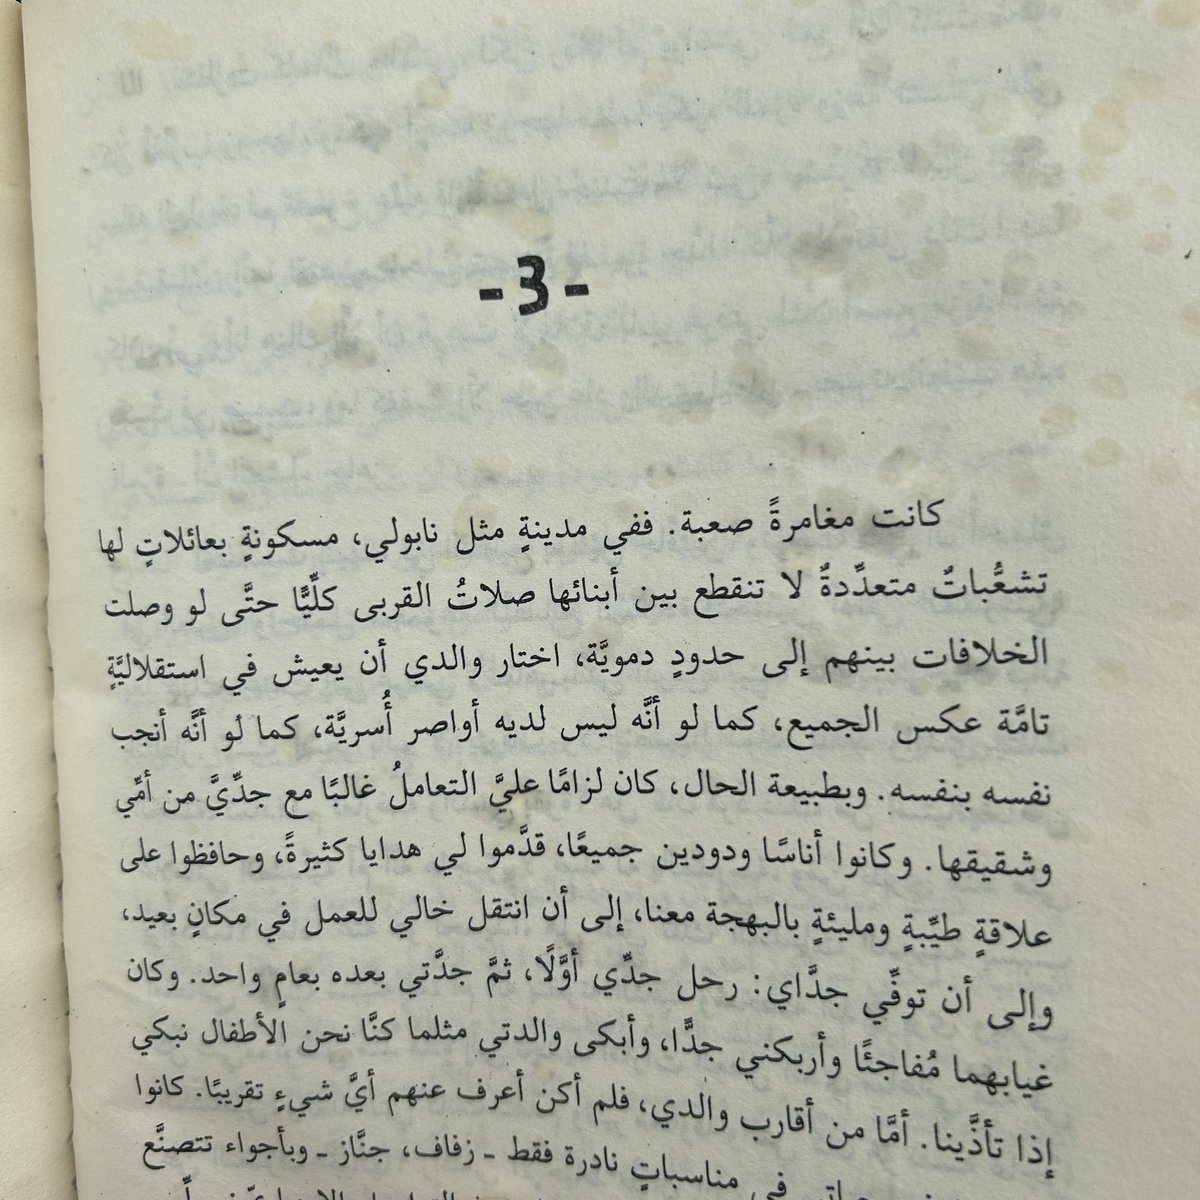 -3-
كانت مغامرةً صعبة. ففي مدينةٍ مثل نابولي، مسكونةٍ بعائلاتٍ لها
تشعُّباتٌ متعدِّدةٌ لا تنقطع بين أبنائها صلاتُ القربى كلِّيًّا حتَّى لو وصلت
الخلافات بينهم إلى حدودٍ دمويَّة، اختار والدي أن يعيش في استقلاليَّةٍ
تامَّة عكس الجميع، كما لو أنَّه ليس لديه أواصر أُسريَّة، كما لو أنَّه أنجب
نفسه بنفسه. وبطبيعة الحال، كان لزامًا عليَّ التعاملُ غالبًا مع جدِّيَّ من أمِّي
وشقيقها. وكانوا أناسًا ودودين جميعًا، قدَّموا لي هدايا كثيرةً، وحافظوا على
علاقةٍ طيِّبةٍ ومليئةٍ بالبهجة معنا، إلى أن انتقل خالي للعمل في مكانٍ بعيد،
وإلى أن توفِّي جدَّاي: رحل جدِّي أوَّلًا، ثمَّ جدَّتي بعده بعامٍ واحد. وكان
غيابهما مُفاجئًا وأربكني جدًّا، وأبكى والدتي مثلما كنَّا نحن الأطفال نبكي
إذا تأذَّينا. أمَّا من أقارب والدي، فلم أكن أعرف عنهم أيَّ شيءٍ تقريبًا. كانوا
في مناسباتٍ نادرة فقط ـ زفاف، جنَّاز ـ وبأجواء تتصنَّع